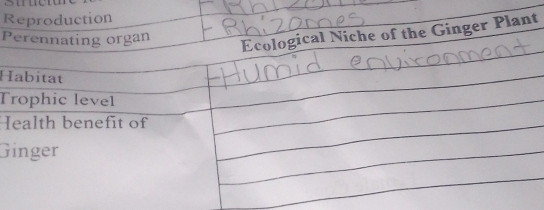 Structure
- Rhizom
Reproduction
- Rhizomes
Perennating organ
Ecological Niche of the Ginger Plant
Habitat
- Humid environment
Trophic level
Health benefit of
Ginger